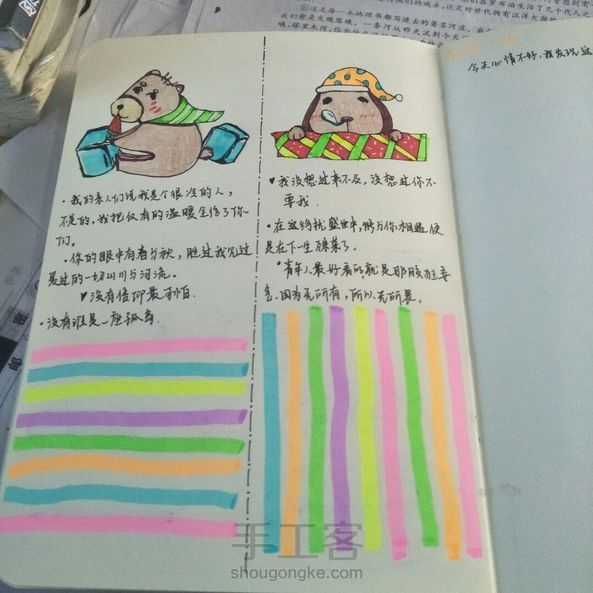 ⑤这是每一本地理书都写进去的著名河流,
今天心情不好,我发现这
·我的亲人们说我是个很冷的人,
不是的,我把仅有的温暖全给了你
们。
·你的眼中有春与秋,胜过我见过
爱过的一切山川与河流。
♥没有信仰最可怕.
·没有谁是一座孤岛
♥我没想过来不及,没想过你不
要我.
·在这纷扰盛世中,能与你相遇便
是在下一生的荣
·青年人最好看的就是那股狂妄
气,因为无所有,所以无所畏。
手工客
shougongke.com